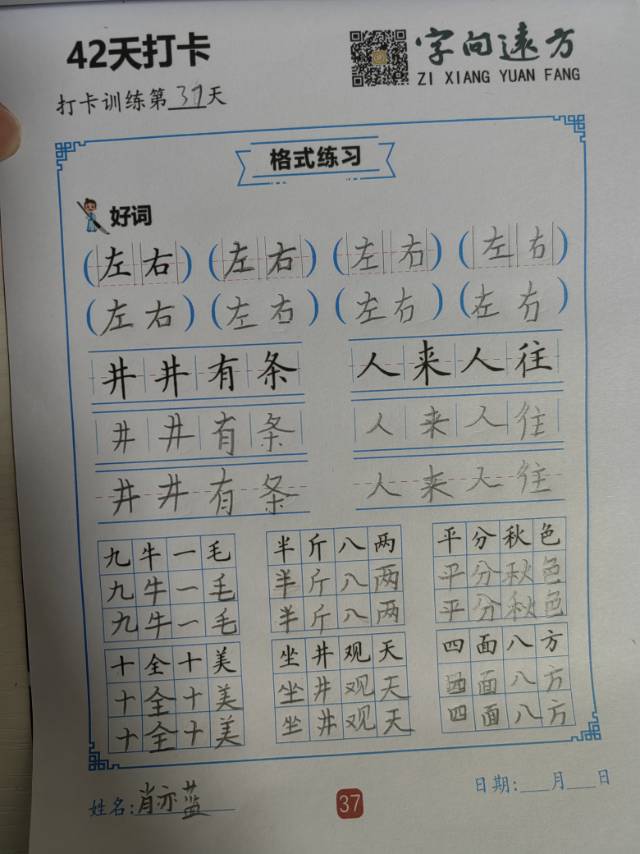 42天打卡
字向远方
ZI XIANG YUAN FANG
打卡训练第37天
格式练习
好词
(左右) (左右) (左右) (左右)
(左右) (左右) (左右) (左右)
井井有条 人来人往
井井有条 人来人往
井井有条 人来人往
九牛一毛 半斤八两 平分秋色
九牛一毛 半斤八两 平分秋色
九牛一毛 半斤八两 平分秋色
十全十美 坐井观天 四面八方
十全十美 坐井观天 四面八方
十全十美 坐井观天 四面八方
姓名:肖亦蓝
37
日期:___月___日